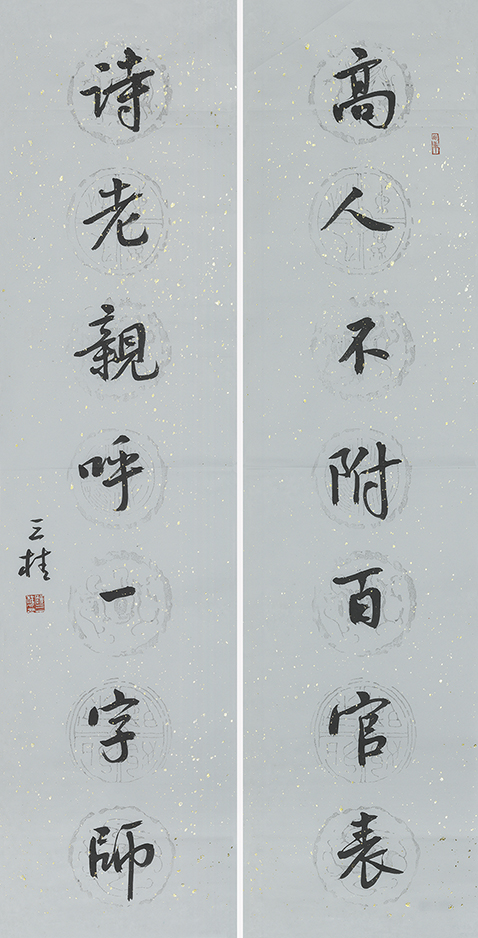 高人不附百官表
詩老親呼一字師
三桂